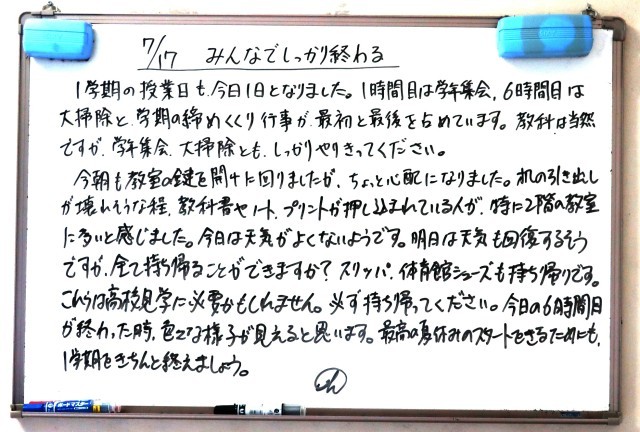 7/17 みんなでしっかり終わる
1学期の授業日も、今日1日となりました。1時間目は学年集会、6時間目は
大掃除と、学期の締めくくり行事が、最初と最後を占めています。教科は当然
ですが、学年集会、大掃除とも、しっかりやりきってください。
今朝も教室の鍵を開けに回りましたが、ちょっと心配になりました。机の引き出し
が壊れそうな程、教科書やノート、プリントが押し込まれている人が、特に2階の教室
に多いと感じました。今日は天気がよくないようです。明日は天気も回復するそう
ですが、全て持ち帰ることができますか？スリッパ、体育館シューズも持ち帰りです。
これらは高校見学に必要かもしれません。必ず持ち帰ってください。今日の6時間目
が終わった時、色々な様子が見えると思います。最高の夏休みのスタートをきるためにも、
1学期をきちんと終えましょう。
ボードマスター